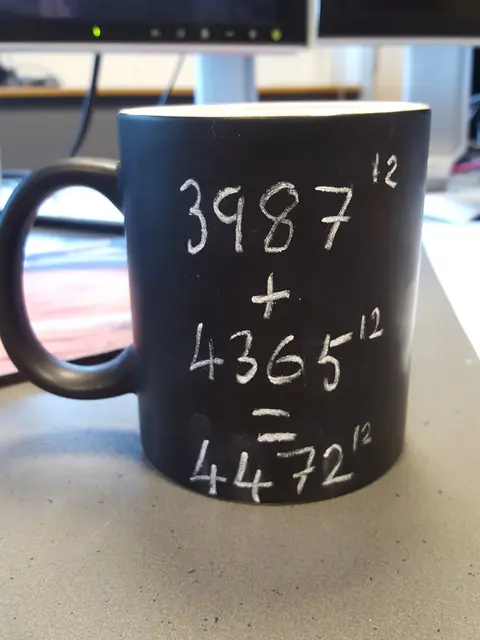 3987¹²
+
4365¹²
=
4472¹²